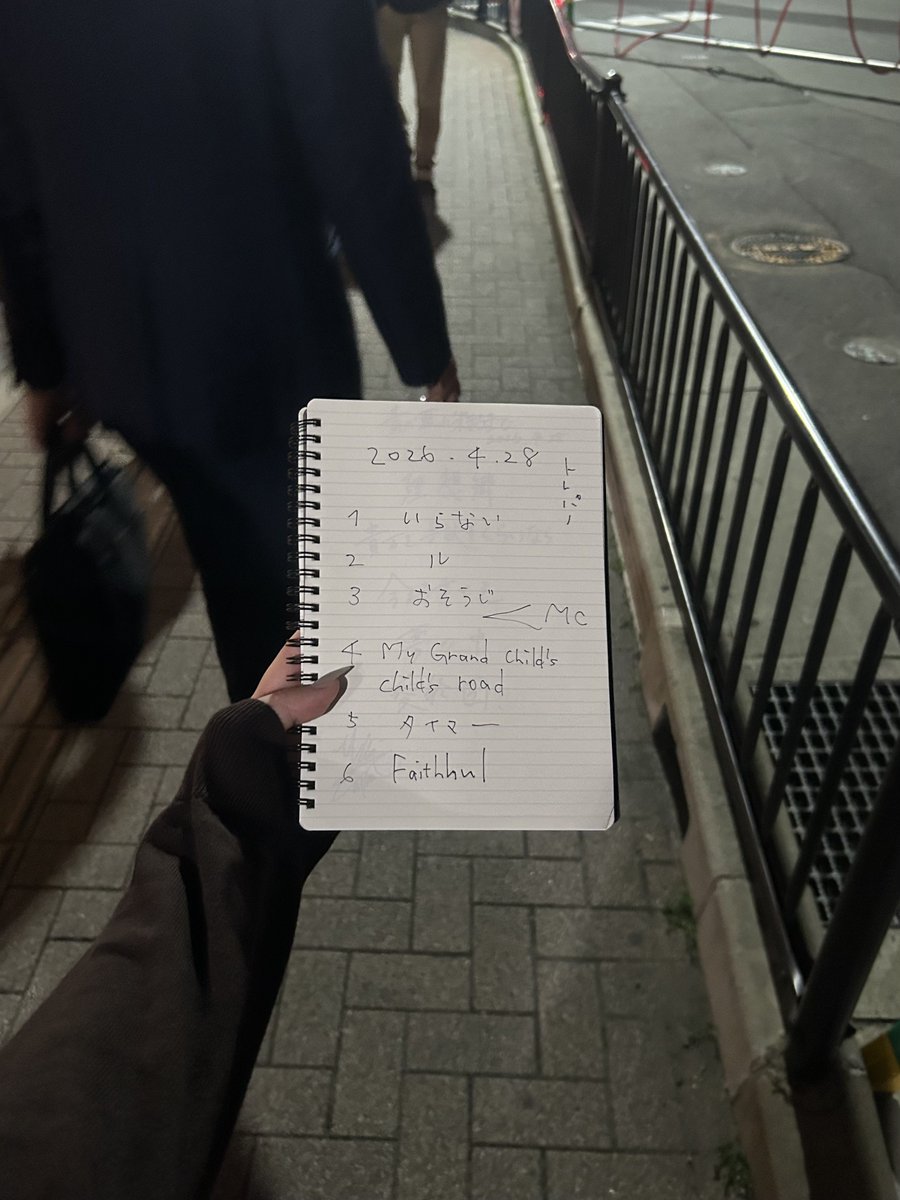 2026.4.28
1 いらない
2 ル
3 おそうじ
MC
4 My Grand child's
child's road
5 タイマー
6 Faithhul